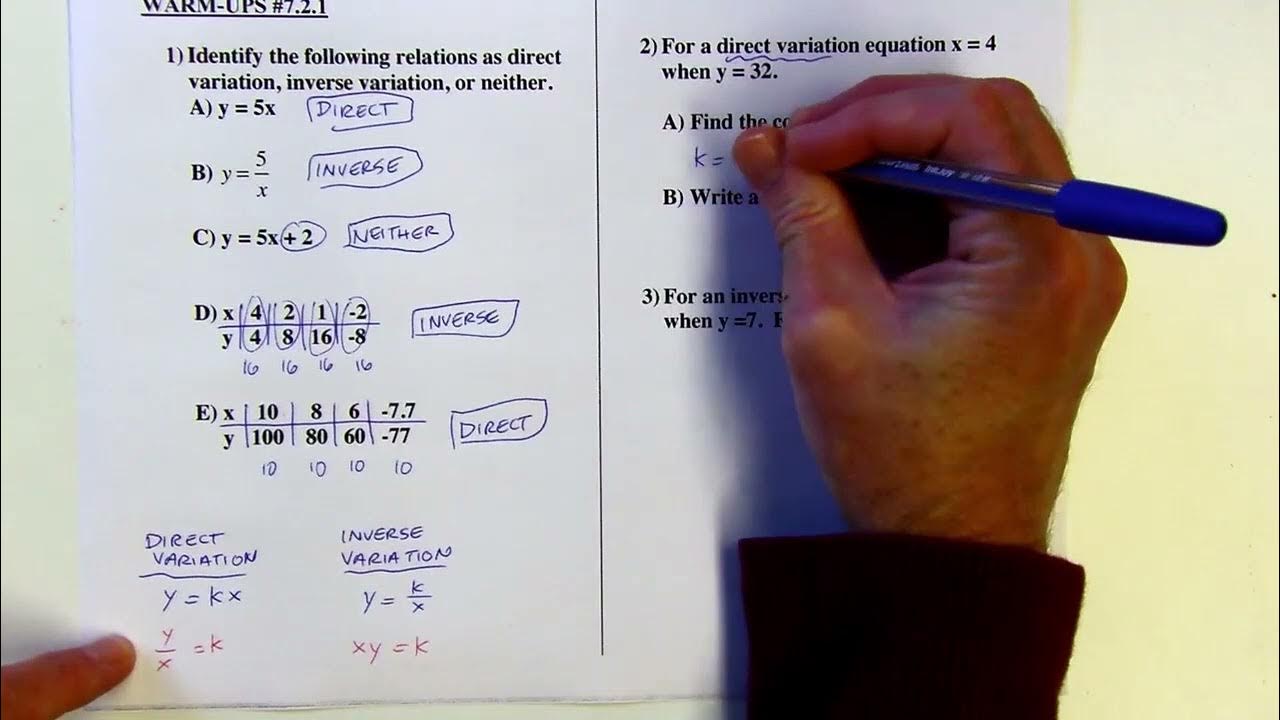 WARM-UPS #7.2.1
1) Identify the following relations as direct
variation, inverse variation, or neither.
A) y = 5x DIRECT
B) y = 5/x INVERSE
C) y = 5x + 2 NEITHER
D) x 4 2 1 -2
y 4 8 16 -8
INVERSE
16 16 16 16
E) x 10 8 6 -7.7
y 100 80 60 -77
DIRECT
10 10 10 10
DIRECT
VARIATION
y = kx
y/x = k
INVERSE
VARIATION
y = k/x
xy = k
2) For a direct variation equation x = 4
when y = 32.
A) Find the
k =
B) Write a
3) For an
when y =7.